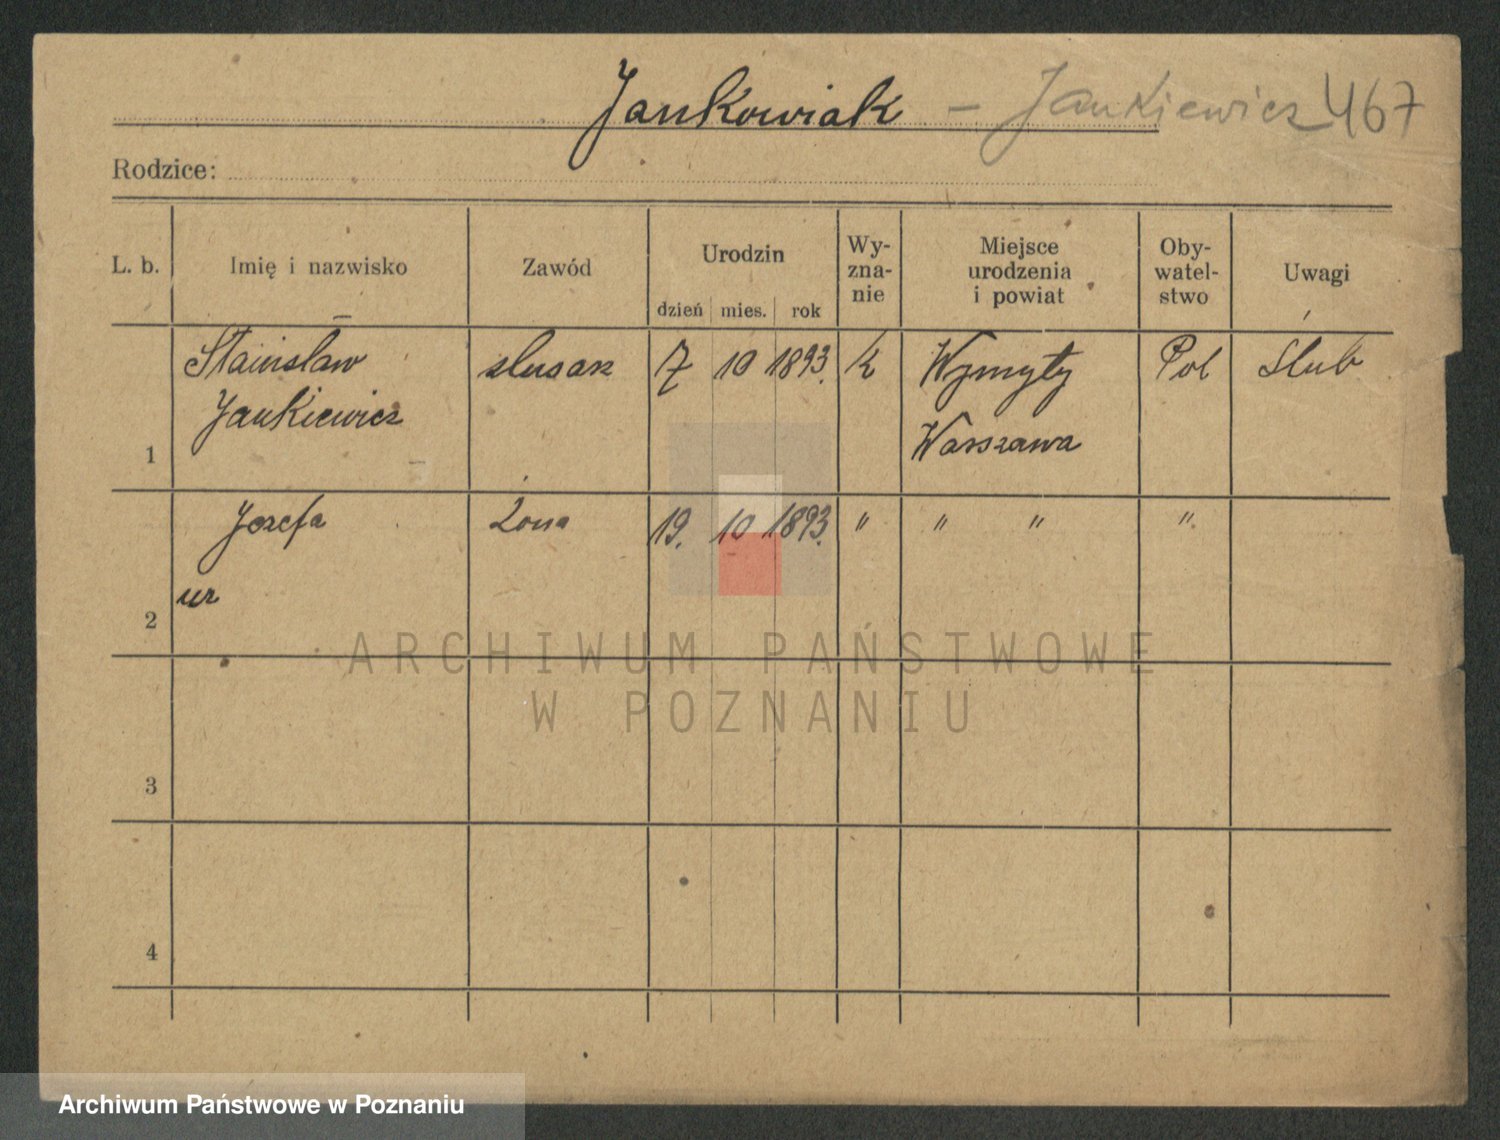 Jankowiak – Jankiewicz 467
Rodzice:
L. b. Imię i nazwisko Zawód Urodzin dzień mies. rok Wy-zna-nie Miejsce urodzenia i powiat Oby-watel-stwo Uwagi
1 Stanisław Jankiewicz ślusarz 7 10 1893. k Wymyły Warszawa Pol Ślub
2 Jozefa ur żona 19. 10 1893. " " " "
3
4
ARCHIWUM PAŃSTWOWE
W POZNANIU
Archiwum Państwowe w Poznaniu